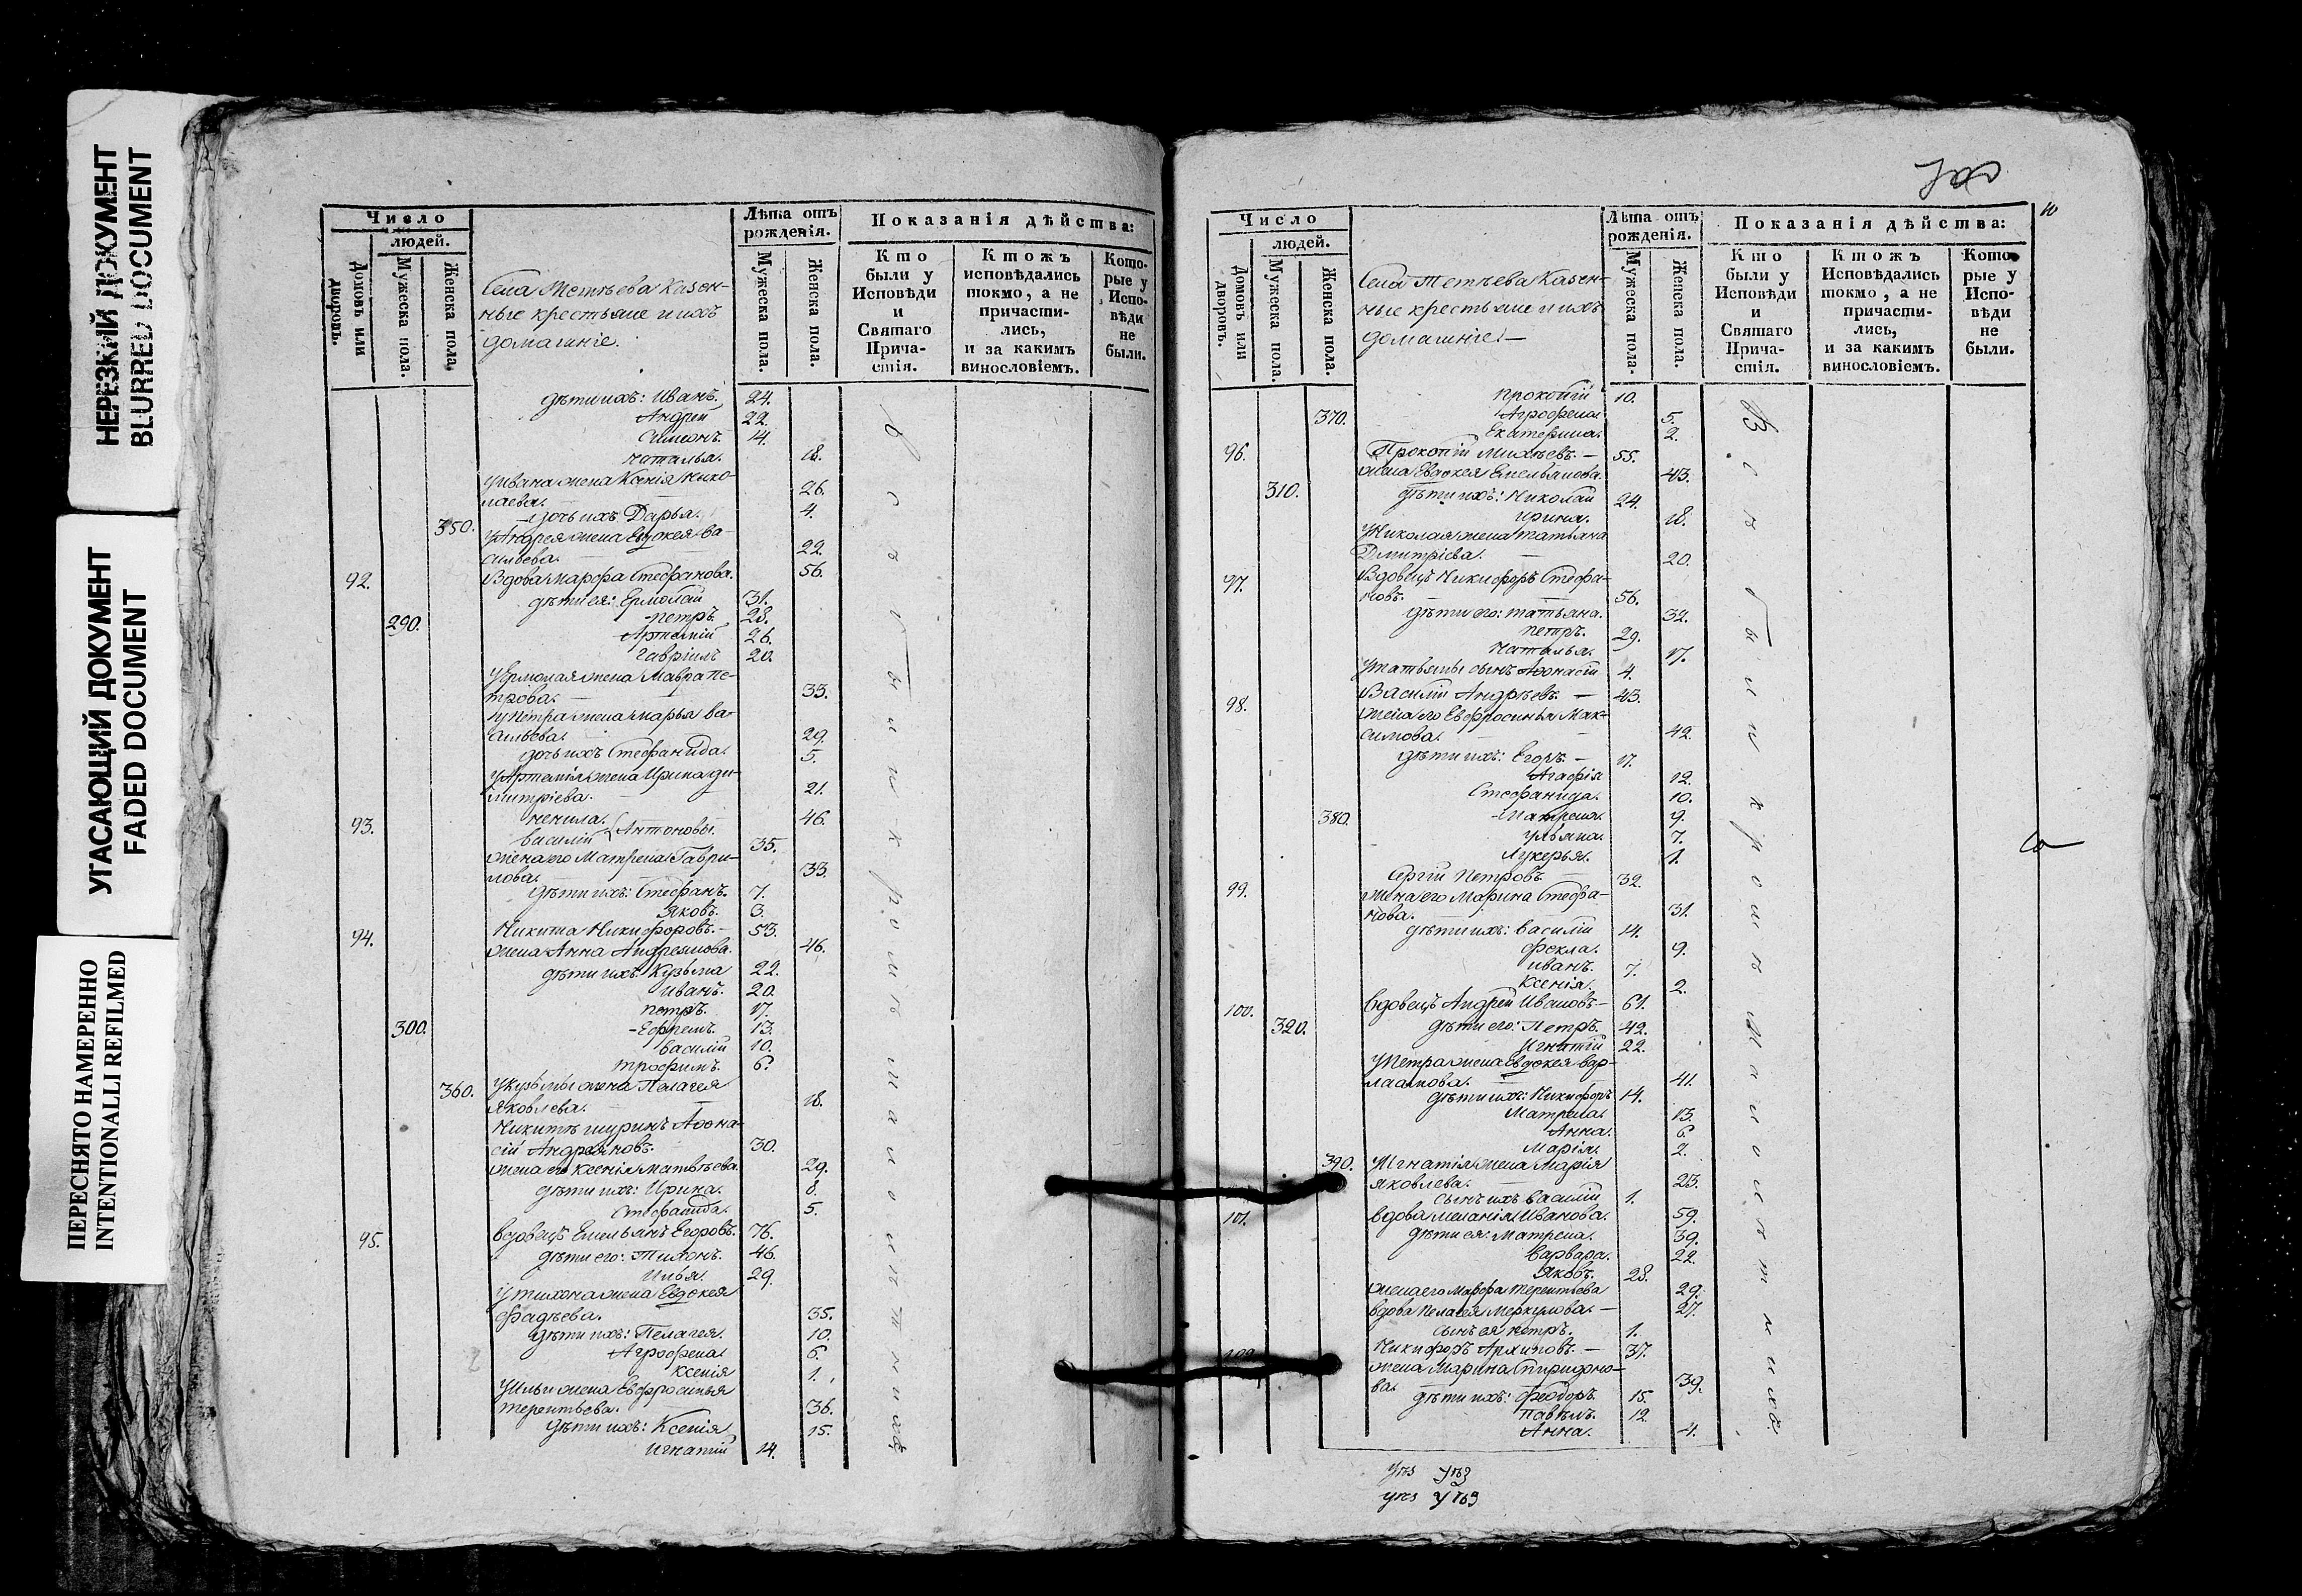 НЕРЕЗКИЙ ДОКУМЕНТ
BLURRED DOCUMENT
УГАСАЮЩИЙ ДОКУМЕНТ
FADED DOCUMENT
ПЕРЕСНЯТО НАМЕРЕННО
INTENTIONALLI REFILMED
Число
людей.
Домовъ или дворовъ.
Мужеска пола.
Женска пола.
Села Тетѣева Казен-
ные крестьяне и ихъ
домашніе.
Лѣта отъ рожденія.
Мужеска пола.
Женска пола.
Показанія дѣйства:
Кто были у Исповѣди и Святаго Причастія.
Ктожъ исповѣдались токмо, а не причастились, и за какимъ винословіемъ.
Которые у Исповѣди не были.
дѣти ихъ: Иванъ. 24.
Андрей 22.
Симеонъ. 14.
Наталья. 18.
У Ивана жена Ксенія Нико-
лаева. 26.
350. дочь ихъ Дарья. 4.
У Андрея жена Евдокея Ва-
сильева. 22.
92. Вдова Марфа Стефанова. 56.
дѣти ея: Ермолай 31.
290. Петръ. 28.
Артемій 26.
Гавріилъ 20.
У Ермолая жена Мавра Пе-
трова. 33.
У Петра жена Марья Ва-
сильева. 29.
дочь ихъ Стефанида. 5.
У Артемія жена Ирина Ди-
митріева. 21.
93. Ненила. 46.
Василій Антоновы. 35.
жена его Матрена Гаври-
лова. 33.
дѣти ихъ: Стефанъ. 7.
Яковъ. 3.
94. Никита Никифоровъ. 53.
жена Анна Андреянова. 46.
дѣти ихъ: Кузьма 22.
Иванъ. 20.
Петръ. 17.
300. Ефремъ. 13.
Василій 10.
Трофимъ. 6.
360. У Кузьмы жена Пелагея
Яковлева. 18.
Никитѣ шуринъ Афона-
сій Андреяновъ. 30.
жена его Ксенія Матвѣева. 29.
дѣти ихъ: Ирина. 8.
Стефанида. 5.
95. Вдовецъ Емельянъ Егоровъ. 76.
дѣти его: Тихонъ. 46.
Илья. 29.
У Тихона жена Евдокея
Фадѣева. 35.
дѣти ихъ: Пелагея. 10.
Агрофена. 6.
Ксенія 1.
У Ильи жена Евфросинья
Терентьева. 36.
дѣти ихъ: Ксенія 15.
Игнатій 14.
Число
людей.
Домовъ или дворовъ.
Мужеска пола.
Женска пола.
Села Тетѣева Казен-
ные крестьяне и ихъ
домашніе.
Лѣта отъ рожденія.
Мужеска пола.
Женска пола.
Показанія дѣйства:
Кто были у Исповѣди и Святаго Причастія.
Ктожъ Исповѣдались токмо, а не причастились, и за какимъ винословіемъ.
Которые у Исповѣди не были.
Прокопій 10.
370. Агрофена. 5.
Екатерина. 2.
96. Прокопій Михѣевъ. 55.
жена Евдокея Емельянова. 43.
310. дѣти ихъ: Николай 24.
Ирина. 18.
У Николая жена Татьяна
Дмитріева. 20.
97. Вдовецъ Никифоръ Стефа-
новъ. 56.
дѣти его: Татьяна. 32.
Петръ. 29.
Наталья. 17.
У Татьяны сынъ Афонасій 4.
98. Василій Андрѣевъ. 43.
жена его Евфросинья Мак-
симова. 42.
дѣти ихъ: Егоръ. 17.
Агафія 12.
Стефанида. 10.
380. Матрена. 9.
Ульяна. 7.
Лукерья. 1.
99. Сергій Петровъ 32.
жена его Марина Стефа-
нова. 31.
дѣти ихъ: Василій 14.
Фекла. 9.
Иванъ. 7.
Ксенія. 2.
100. Вдовецъ Андрей Ивановъ 61.
320. дѣти его: Петръ. 42.
Игнатій 22.
У Петра жена Евдокея Вар-
лаамова. 41.
дѣти ихъ: Никифоръ 14.
Матрена. 13.
Анна. 6.
Марія. 2.
390. У Игнатія жена Марія
Яковлева. 23.
сынъ ихъ Василій 1.
101. Вдова Меланія Иванова. 59.
дѣти ея: Матрена. 39.
Варвара. 22.
Яковъ. 28.
жена его Марфа Терентьева 29.
Вдова Пелагея Меркулова. 27.
сынъ ея Петръ. 1.
Никифоръ Архиповъ. 37.
жена Марина Спиридоно-
ва. 39.
дѣти ихъ: Феодоръ. 15.
Павелъ. 12.
Анна. 4.